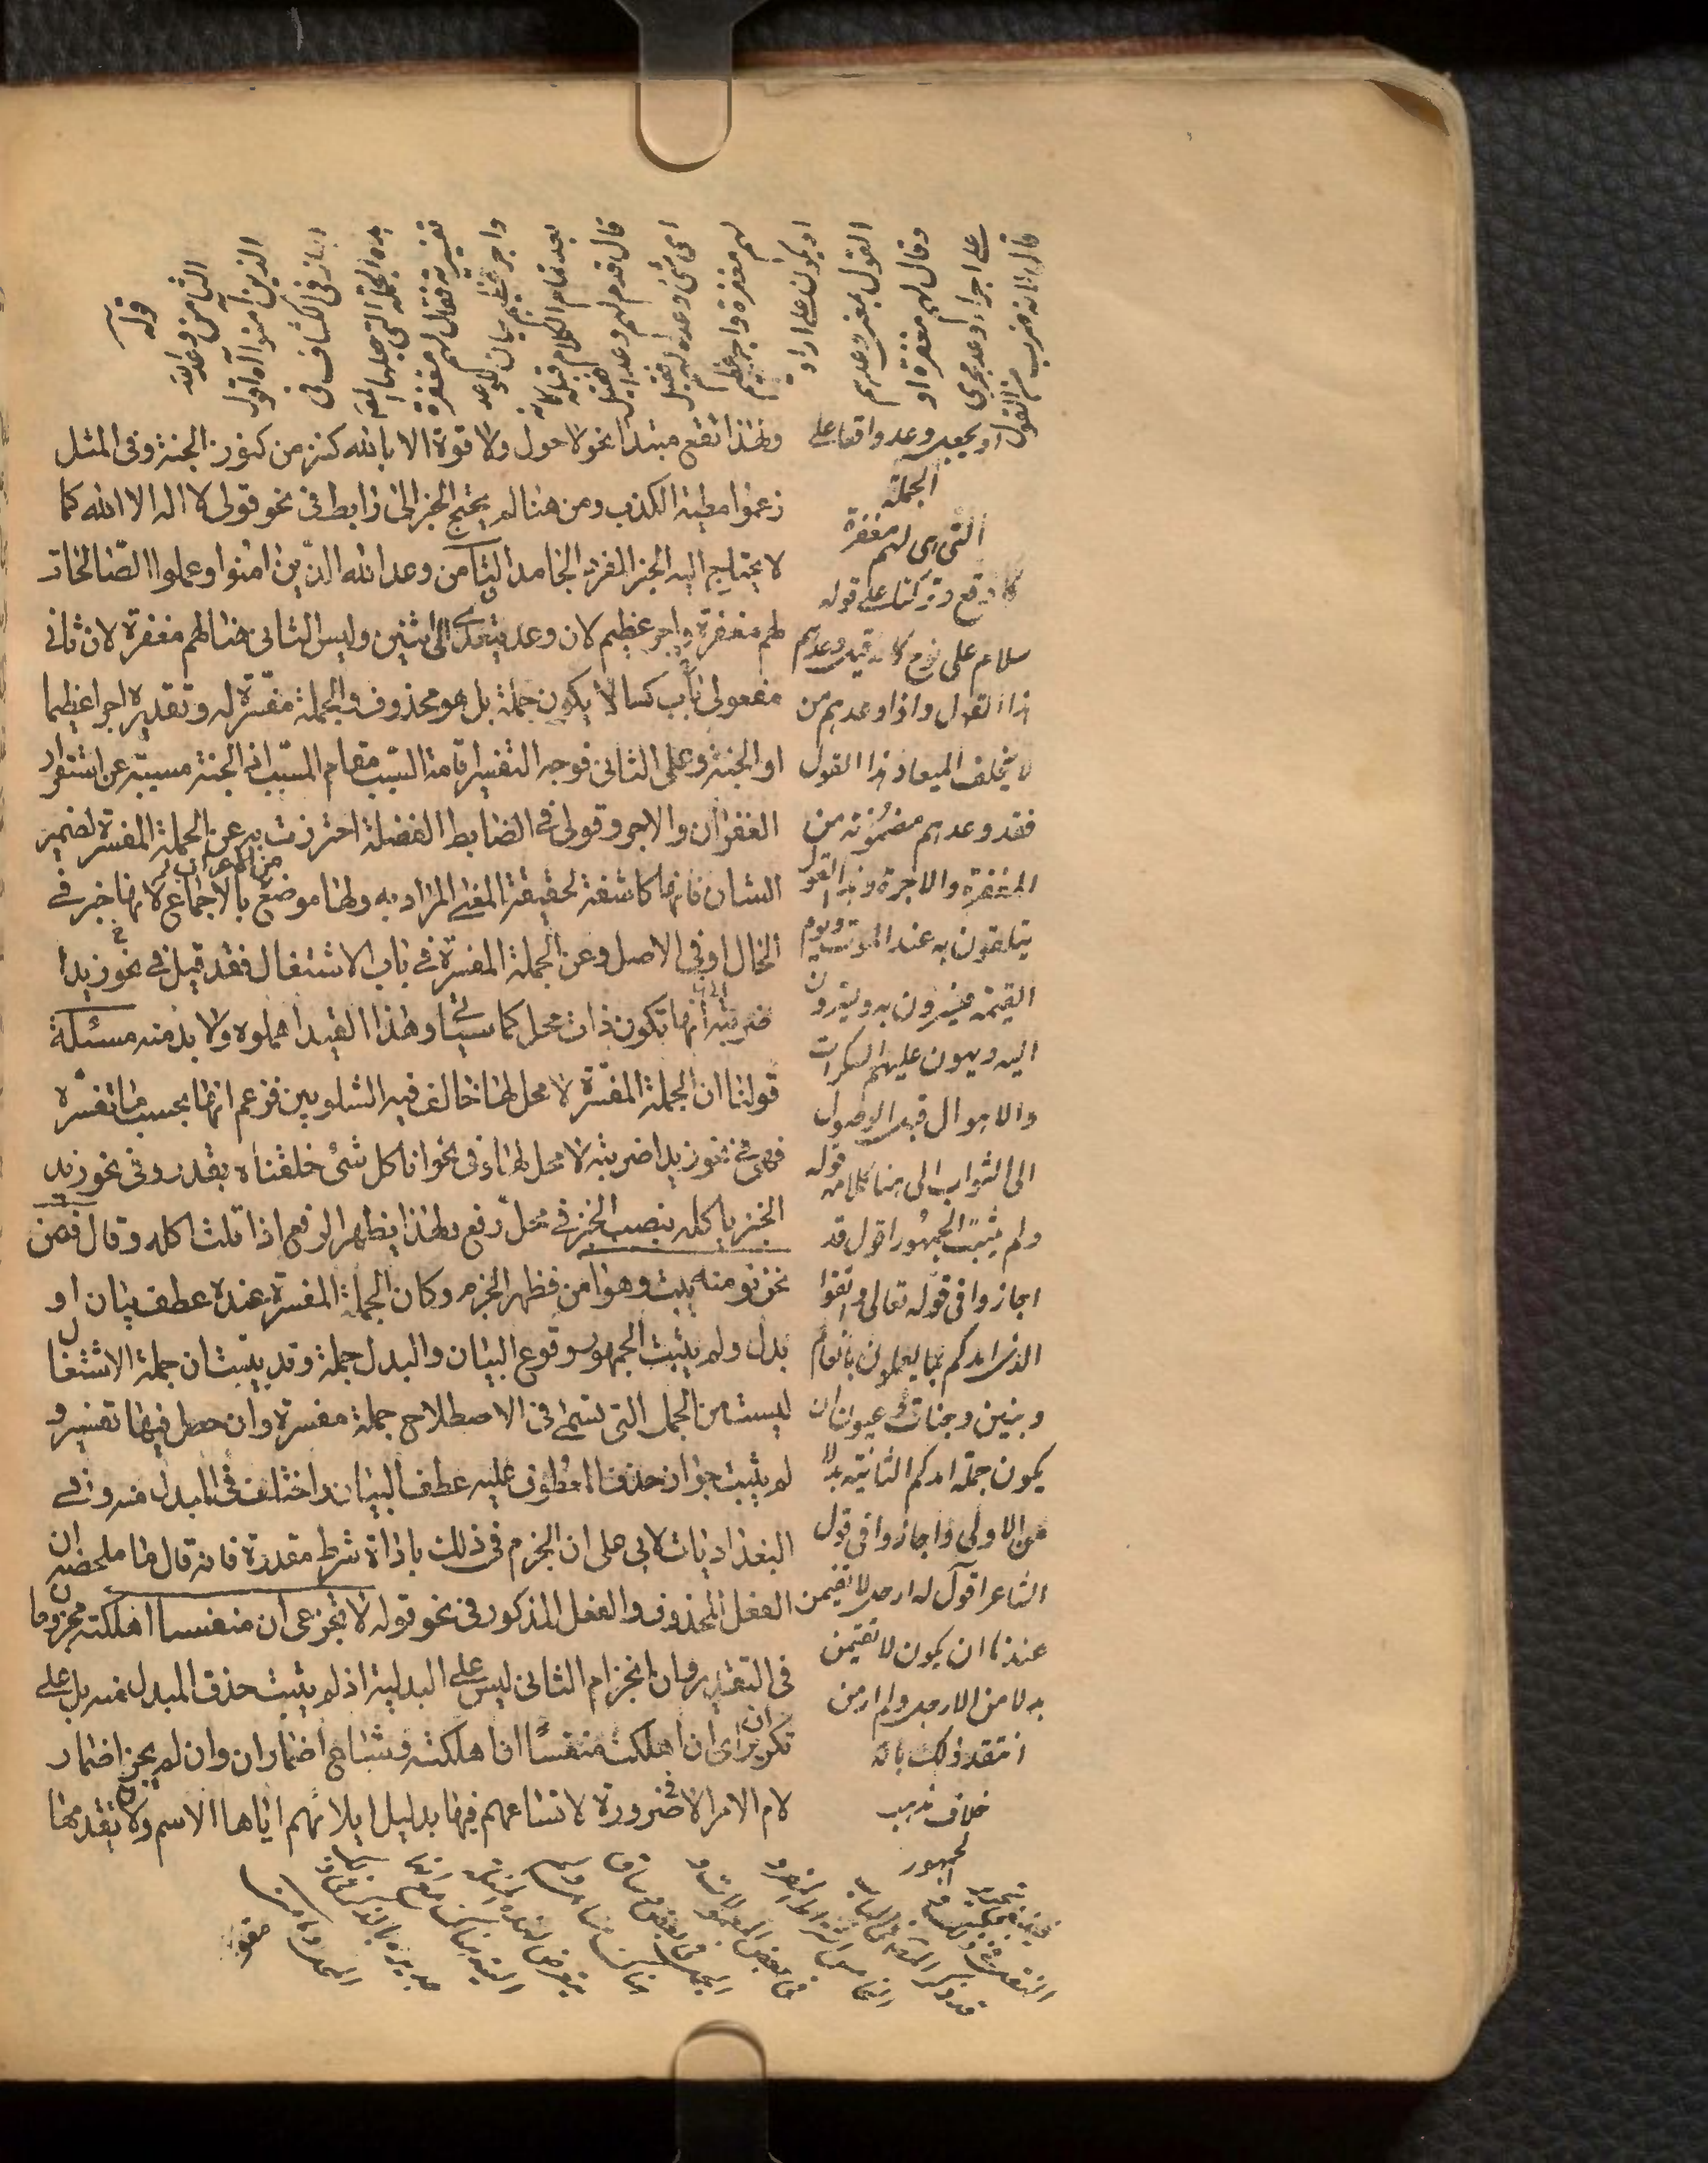 ولهذا تقع مبتدأ نحو لا حول ولا قوة الا بالله كنز من كنوز الجنة وفى المثل
زعموا مطية الكذب ومن هنا لم يحتج الخبر الى رابط فى نحو قولى لا اله الا الله كما
لا يحتاج اليه الخبر المفرد الجامد الثامن وعد الله الذين امنوا وعملوا الصالحات
لهم مغفرة واجر عظيم لان وعد يتعدى الى اثنين وليس الثانى هنا لهم مغفرة لان ثانى
مفعولى باب كسا لا يكون جملة بل هو محذوف والجملة مفسرة له وتقديره اجرا عظيما
او الجنة وعلى الثانى فوجه التفسير اقامة السبب مقام المسبب اذ الجنة مسببة عن استقرار
الغفران والاجر وقولى فى الضابط الفضلة احترزت به عن الجملة المفسرة لضمير
الشان فانها كاشفة لحقيقة المعنى المراد به ولها موضع من الاعراب بالاجماع لانها خبر فى
الحال او فى الاصل وعن الجملة المفسرة فى باب الاشتغال فقد قيل فى نحو زيدا
ضربته انها تكون ذات محل كما سيأتى وهذا القيد اهملوه ولا بد منه مسئلة
قولنا ان الجملة المفسرة لا محل لها خالف فيه الشلوبين فزعم انها بحسب ما تفسره
فهى فى نحو زيدا ضربته لا محل لها وفى نحو انا كل شئ خلقناه بقدر وفى نحو زيد
الخبز ياكله بنصب الخبز فى محل رفع ولهذا يظهر الرفع اذا قلت اكله وقال فمن
نحن نومنه يبت وهو آمن فظهر الجزم وكان الجملة المفسرة عنده عطف بيان او
بدل ولم يثبت الجمهور وقوع البيان والبدل جملة وقد يثبت ان جملة الاشتغال
ليست من الجمل التى تسمى فى الاصطلاح جملة مفسرة وان حصل فيها تفسير و
لم يثبت جواز حذف المعطوف عليه عطف البيان واختلف فى المبدل منه وفى
البغداديات لابى على ان الجزم فى ذلك باداة شرط مقدرة فانه قال ما ملخصه ان
الفعل المحذوف والفعل المذكور فى نحو قوله لا تجزعى ان منفسا اهلكته مجزوما
فى التقدير وان انجزام الثانى ليس على البدلية اذ لم يثبت حذف المبدل منه بل على
تكرير ان اى ان اهلكت منفسا ان اهلكته وشاع اضمار ان وان لم يجز اضمار
لام الامر الا فى ضرورة لاتساعهم فيها بدليل ايلائهم اياها الاسم ولان تقدمها
قوله
الثامن وعد الله
الذين آمنوا آه اقول
اجاز فى الكشاف فى
هذه الجملة التى جعلها المص
تفسيرية فقال لهم مغفرة
واجر عظيم بيان للوعد
بعد تمام الكلام قبله كانه
قال قدم لهم وعدا فقيل
اى شئ وعده لهم فقيل
لهم مغفرة واجر عظيم
او يكون على ارادة
القول بمعنى وعدهم
وقال لهم مغفرة او
على اجراء وعد مجرى
قال لانه ضرب من القول
او يجعل وعد واقعا على
الجملة
التى هى لهم مغفرة
كما وقع تركنا على قوله
سلام على نوح كانه قيل وعدهم
هذا القول واذا وعدهم من
لا يخلف الميعاد هذا القول
فقد وعدهم مضمونه من
المغفرة والاجر وهذا القول
يتلقون به عند الموت ويوم
القيمة فيسرون به ويستروحون
اليه ويهون عليهم السكرات
والاهوال قبل الوصول
الى الثواب الى هنا كلامه قوله
ولم يثبت الجمهور اقول قد
اجازوا فى قوله تعالى واتقوا
الذى امدكم بما تعلمون امدكم بانعام
وبنين وجنات وعيون ان
يكون جملة امدكم الثانية بدلا
من الاولى واجازوا فى قول
الشاعر اقول له ارحل لا تقيمن
عندنا ان يكون لا تقيمن
بدلا من الارحل
انتقد ذلك بانه
خلاف مذهب
الجمهور